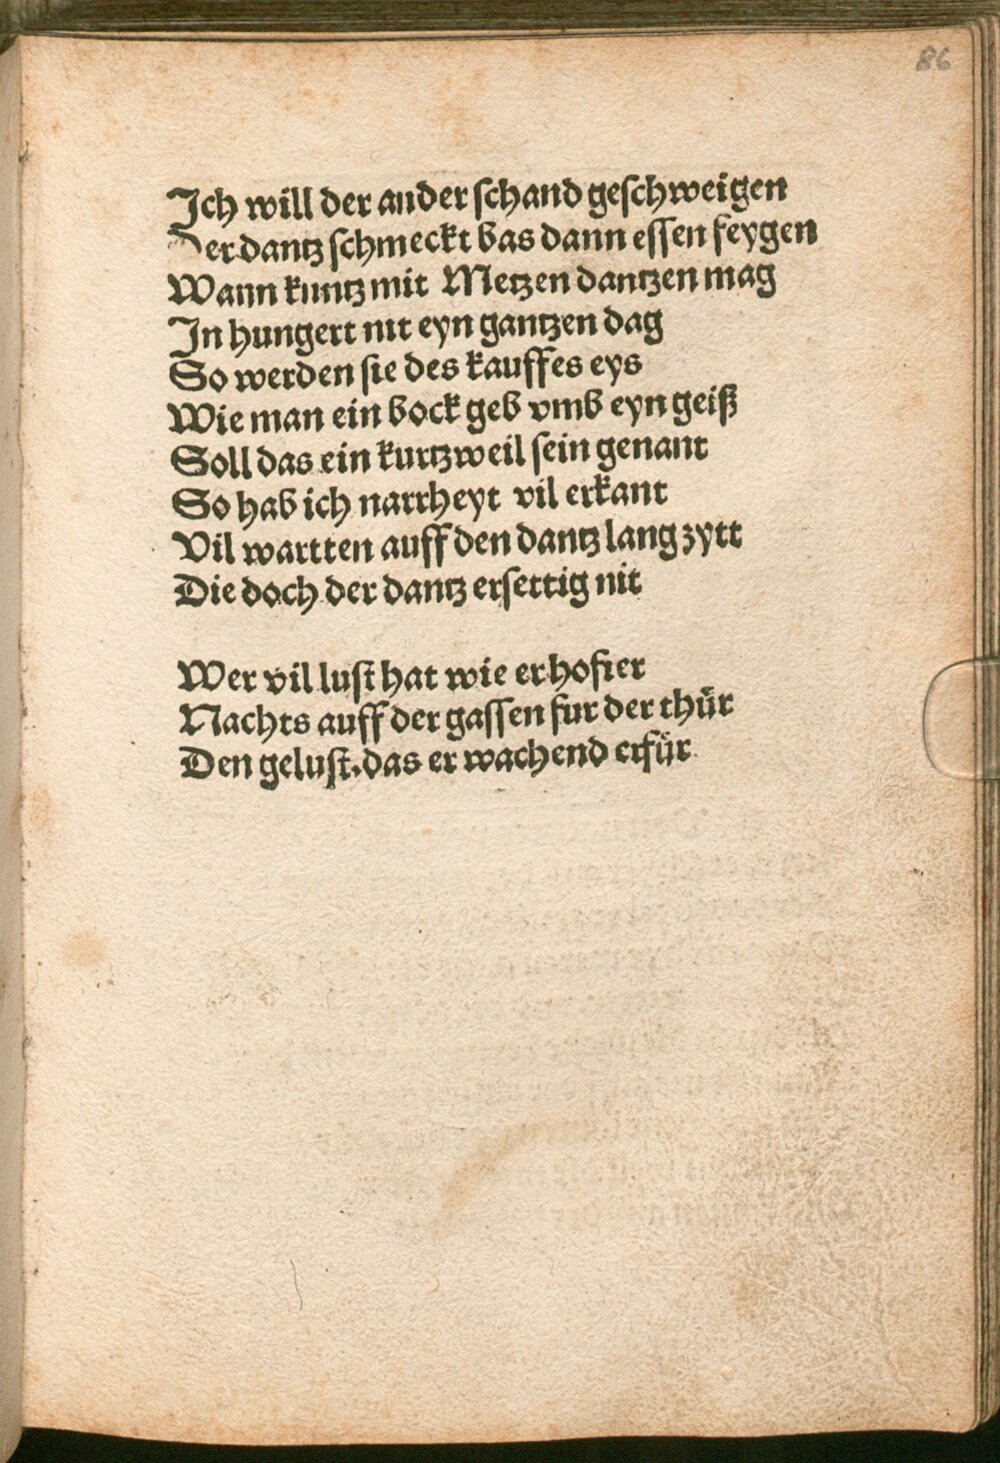 86
Ich will der ander schand geschweigen
Der dantz schmeckt bas dann essen feygen
Wann kuntz mit Metzen dantzen mag
In hungert nit eyn gantzen dag
So werden sie des kauffes eys
Wie man ein bock geb vmb eyn geiß
Soll das ein kurtzweil sein genant
So hab ich narrheyt vil erkant
Vil wartten auff den dantz lang zytt
Die doch der dantz ersettig nit
Wer vil lust hat wie er hofier
Nachts auff der gassen fur der thür
Den gelust, das er wachend erfür